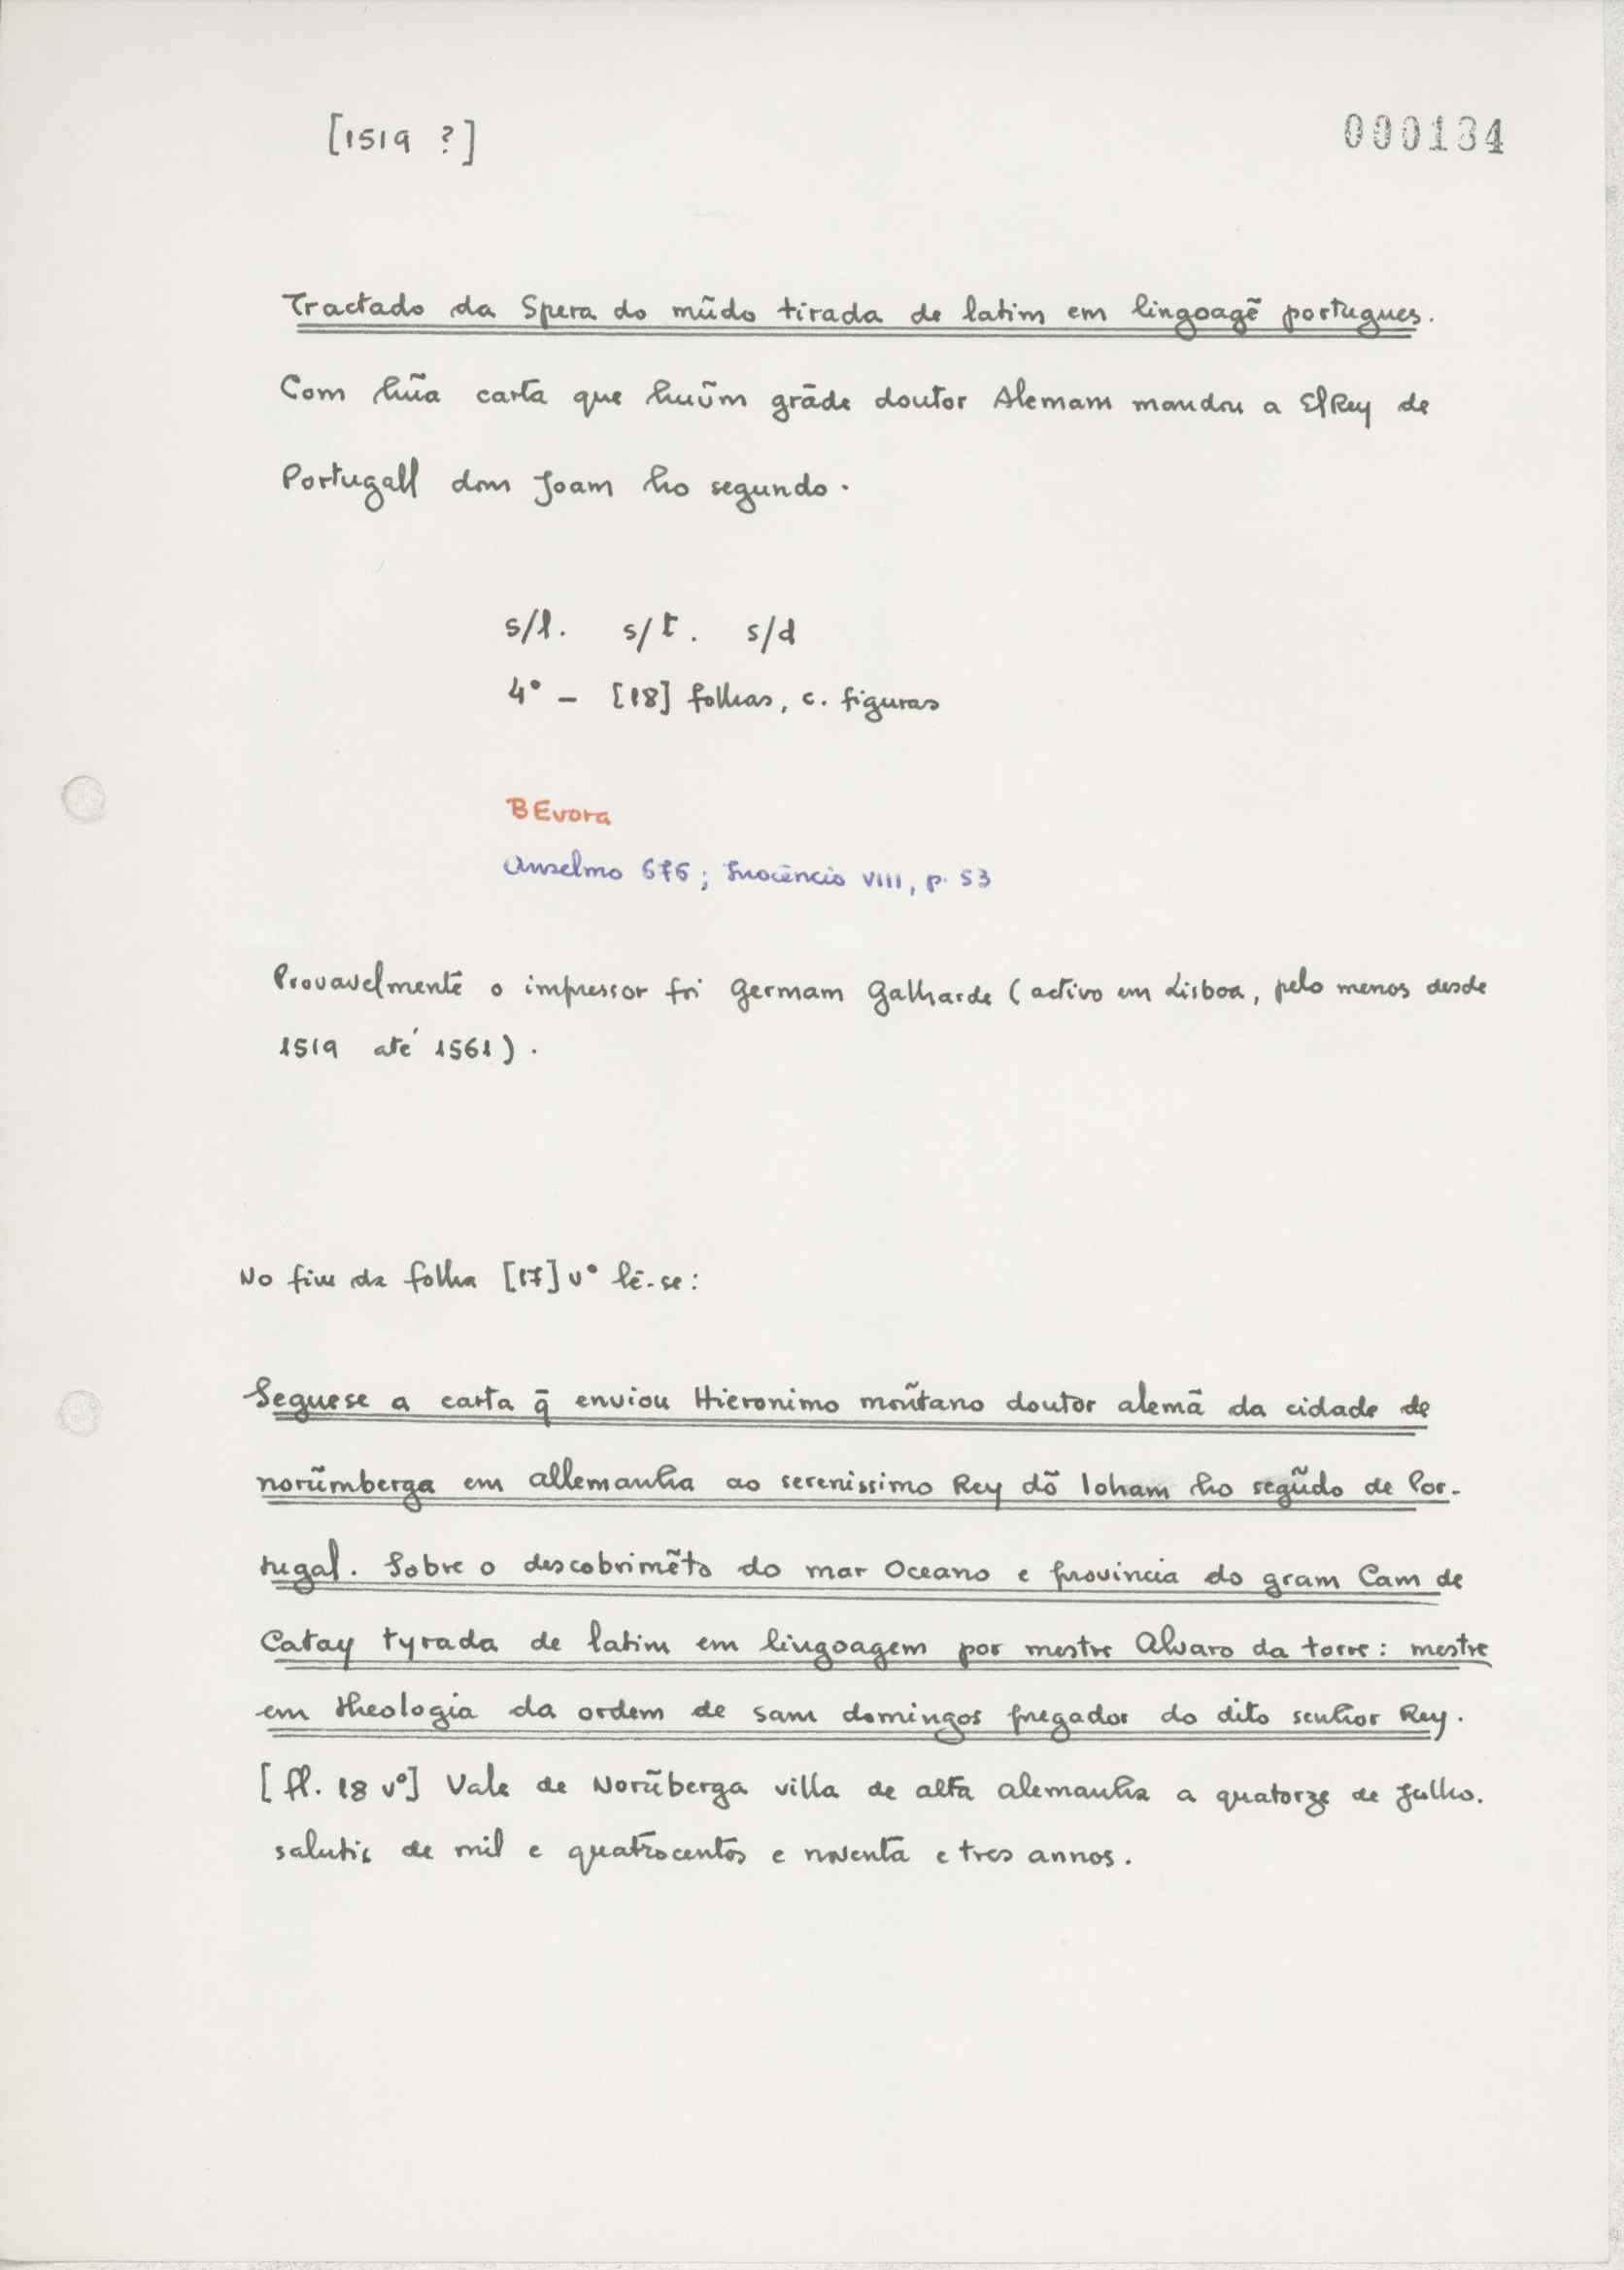 [1519 ?]
000134
Tractado da Spera do mũdo tirada de latim em lingoagẽ portugues.
Com hũa carta que huũm grãde doutor Alemam mandou a ElRey de
Portugall dom Joam ho segundo.
s/l. s/t. s/d
4º - [18] folhas, c. figuras
BEvora
Anselmo 676; Inocêncio VIII, p. 53
Provavelmente o impressor foi Germam Galharde (activo em Lisboa, pelo menos desde
1519 até 1561).
No fim da folha [17] vº lê-se:
Seguese a carta q̃ enviou Hieronimo moñtano doutor alemã da cidade de
norũmberga em allemanha ao serenissimo Rey dõ Ioham ho segũdo de Por-
tugal. Sobre o descobrimẽto do mar Oceano e provincia do gram Cam de
Catay tyrada de latim em lingoagem por mestre Alvaro da torre: mestre
em theologia da ordem de sam domingos pregador do dito senhor Rey.
[fl. 18 vº] Vale de Norũberga villa de alta alemanha a quatorze de Julho.
salutis de mil e quatrocentos e noventa e tres annos.